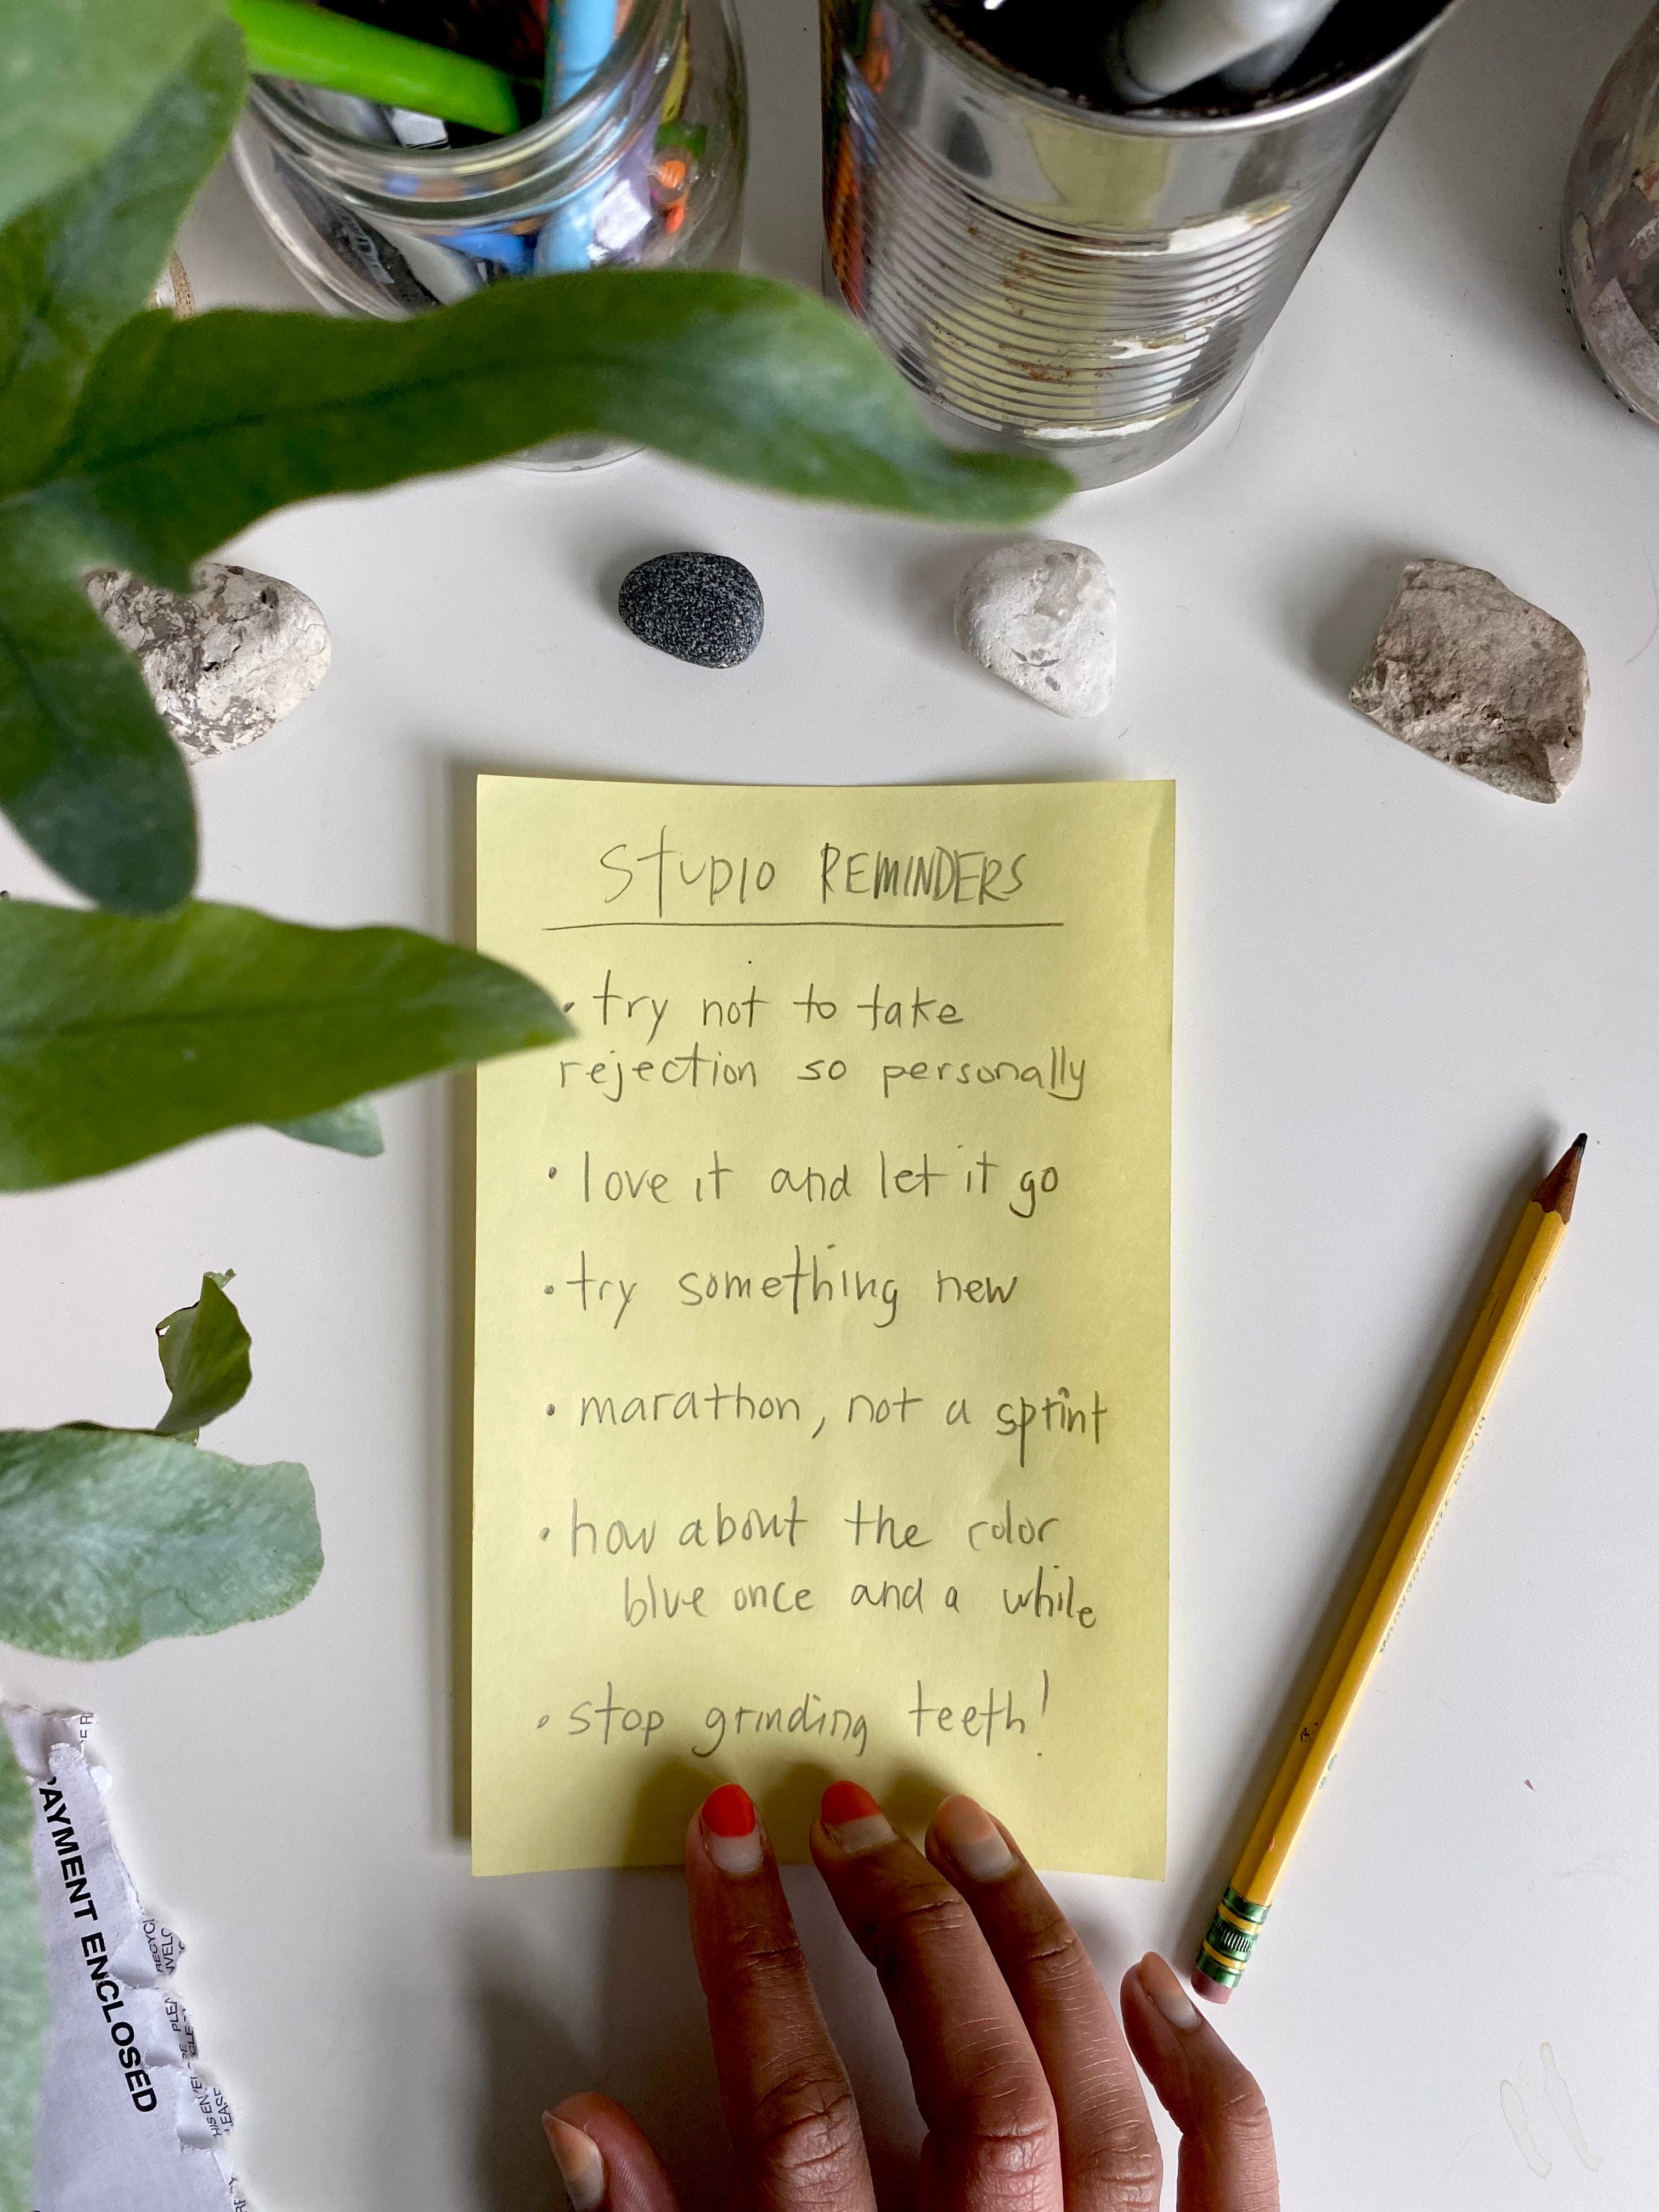 STUDIO REMINDERS
• try not to take
rejection so personally
• love it and let it go
• try something new
• marathon, not a sprint
• how about the color
blue once and a while
• stop grinding teeth!
PAYMENT ENCLOSED